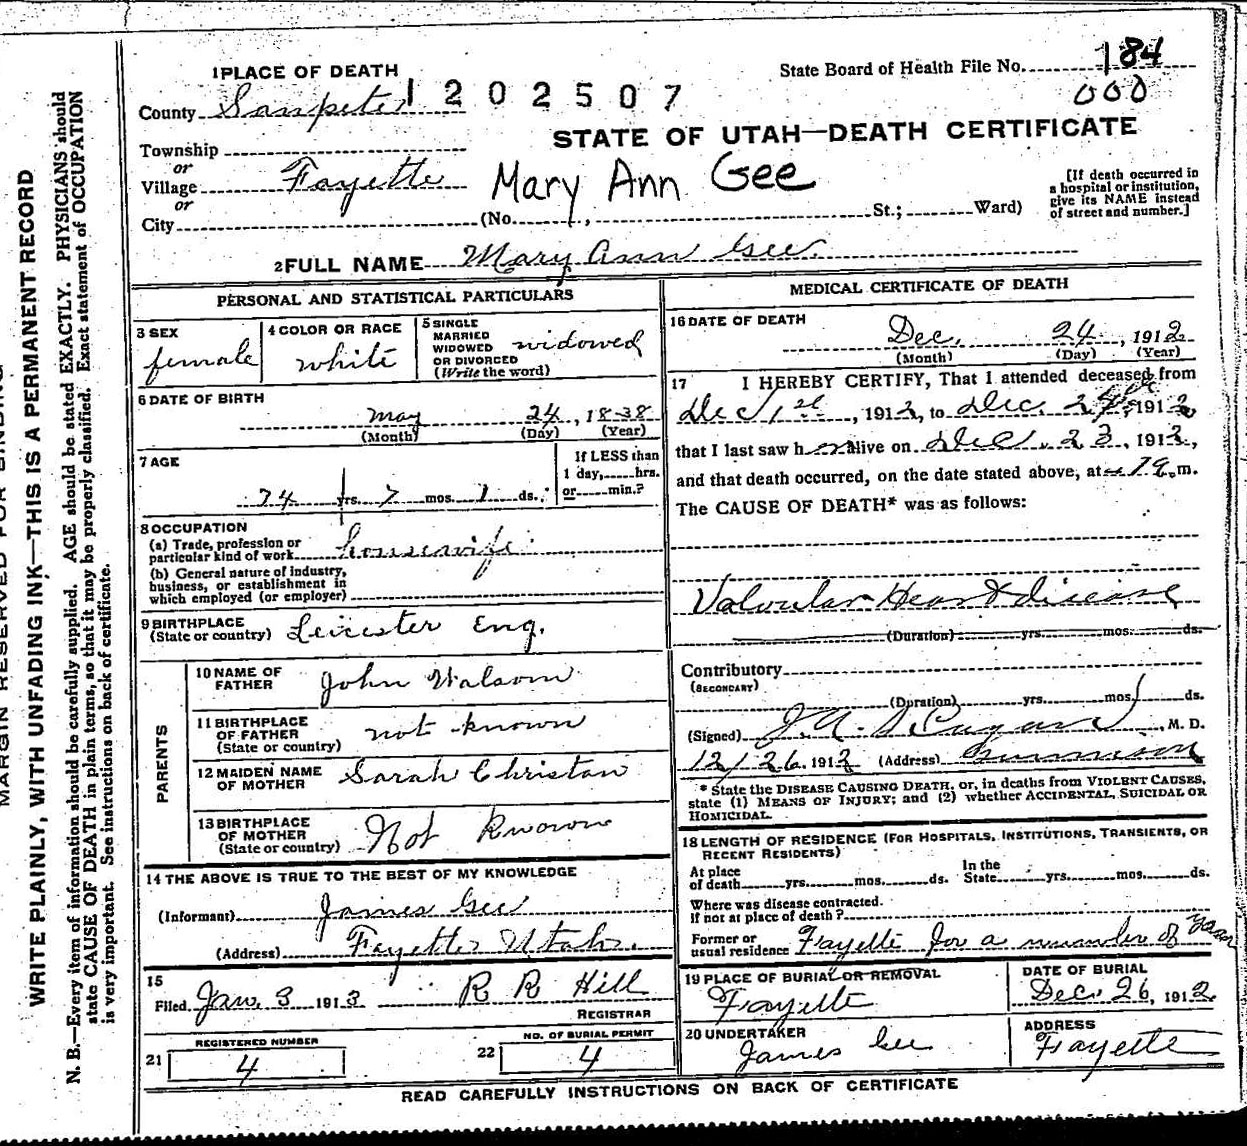 MARGIN RESERVED FOR BINDING
WRITE PLAINLY, WITH UNFADING INK—THIS IS A PERMANENT RECORD
N. B.—Every item of information should be carefully supplied. AGE should be stated EXACTLY. PHYSICIANS should
state CAUSE OF DEATH in plain terms, so that it may be properly classified. Exact statement of OCCUPATION
is very important. See instructions on back of certificate.
1 PLACE OF DEATH
State Board of Health File No. 184
000
County Sanpete
1202507
STATE OF UTAH—DEATH CERTIFICATE
Township
or
Village Fayette
Mary Ann Gee
[If death occurred in
a hospital or institution,
give its NAME instead
of street and number.]
or
City (No. , St.; Ward)
2 FULL NAME Mary Ann Gee.
PERSONAL AND STATISTICAL PARTICULARS
3 SEX
female
4 COLOR OR RACE
white
5 SINGLE
MARRIED
WIDOWED
OR DIVORCED
(Write the word)
widowed
6 DATE OF BIRTH
May 24, 1838
(Month) (Day) (Year)
7 AGE
74 yrs. 7 mos. 1 ds.
If LESS than
1 day, hrs.
or min.?
8 OCCUPATION
(a) Trade, profession or
particular kind of work housewife
(b) General nature of industry,
business, or establishment in
which employed (or employer)
9 BIRTHPLACE
(State or country) Leicester Eng.
PARENTS
10 NAME OF
FATHER John Watson
11 BIRTHPLACE
OF FATHER
(State or country) not known
12 MAIDEN NAME
OF MOTHER Sarah Christan
13 BIRTHPLACE
OF MOTHER
(State or country) Not Known
14 THE ABOVE IS TRUE TO THE BEST OF MY KNOWLEDGE
(Informant) James Gee
(Address) Fayette Utah.
15
Filed Jan. 3 1913 R R Hill
REGISTRAR
21
REGISTERED NUMBER
4
22
NO. OF BURIAL PERMIT
4
MEDICAL CERTIFICATE OF DEATH
16 DATE OF DEATH
Dec. 24, 1912
(Month) (Day) (Year)
17 I HEREBY CERTIFY, That I attended deceased from
Dec 1st, 1912, to Dec. 24th, 1912
that I last saw her alive on Dec. 23, 1912,
and that death occurred, on the date stated above, at m.
The CAUSE OF DEATH* was as follows:
Valvular Heart disease
(Duration) yrs. mos. ds.
Contributory
(SECONDARY)
(Duration) yrs. mos. ds.
(Signed) M. D.
12/26 1912 (Address) Gunnison
* State the DISEASE CAUSING DEATH, or, in deaths from VIOLENT CAUSES,
state (1) MEANS OF INJURY; and (2) whether ACCIDENTAL, SUICIDAL OR
HOMICIDAL.
18 LENGTH OF RESIDENCE (FOR HOSPITALS, INSTITUTIONS, TRANSIENTS, OR
RECENT RESIDENTS)
At place
of death yrs. mos. ds.
In the
State yrs. mos. ds.
Where was disease contracted.
if not at place of death?
Former or
usual residence Fayette for a number of years
19 PLACE OF BURIAL OR REMOVAL
Fayette
DATE OF BURIAL
Dec. 26, 1912
20 UNDERTAKER
James Gee
ADDRESS
Fayette
READ CAREFULLY INSTRUCTIONS ON BACK OF CERTIFICATE